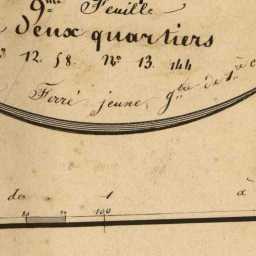 9me Feuille
deux quartiers
12. 58. No 13. 144
Ferré jeune, gtre de 1re c
de 1 à
100